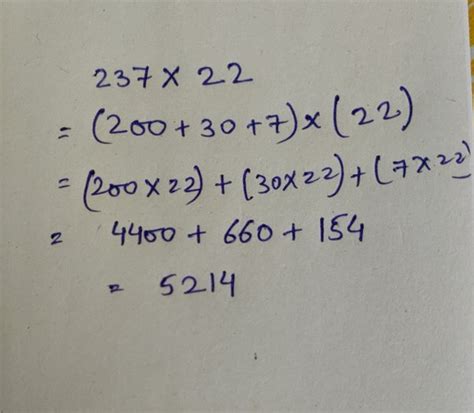 237 × 22
= (200 + 30 + 7) × (22)
= (200 × 22) + (30 × 22) + (7 × 22)
= 4400 + 660 + 154
= 5214